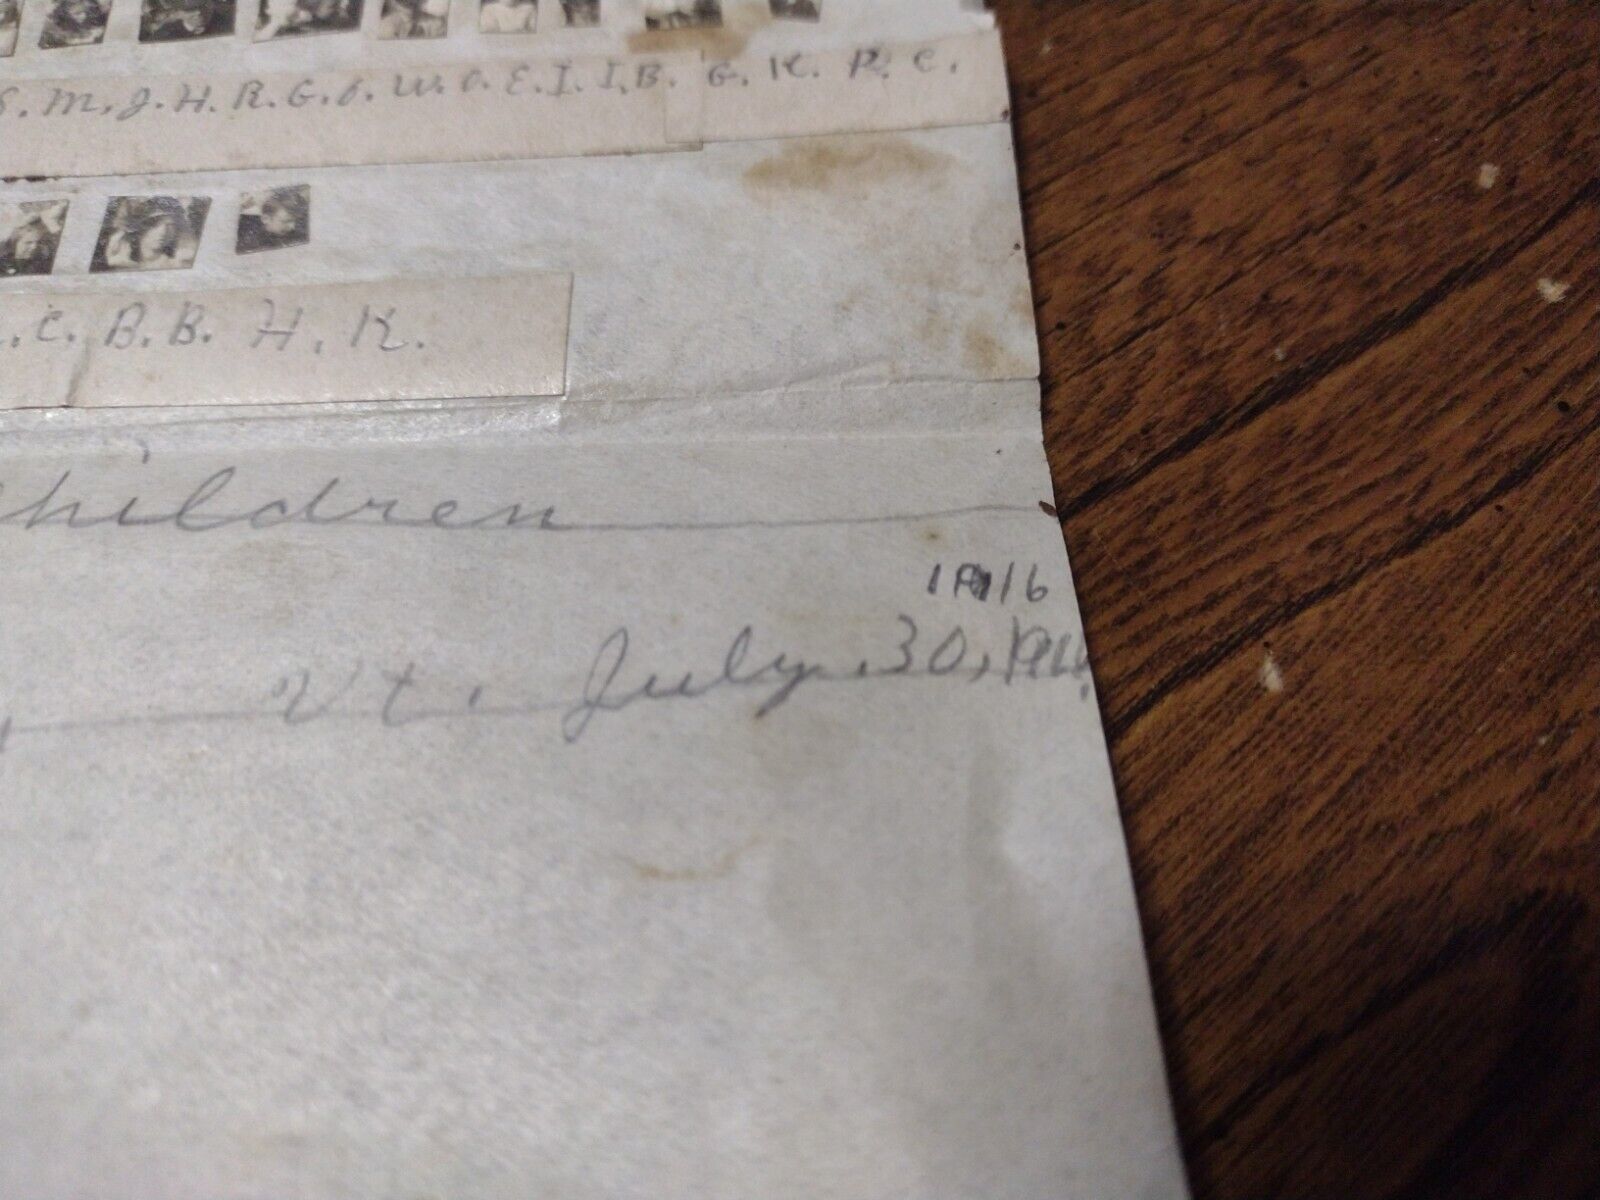 S. M. J. H. R. G. G. W. O. E. I. I. B. G. K. P. C.
C. B. B. H. K.
hildren
1916
Vt. July 30, 1916